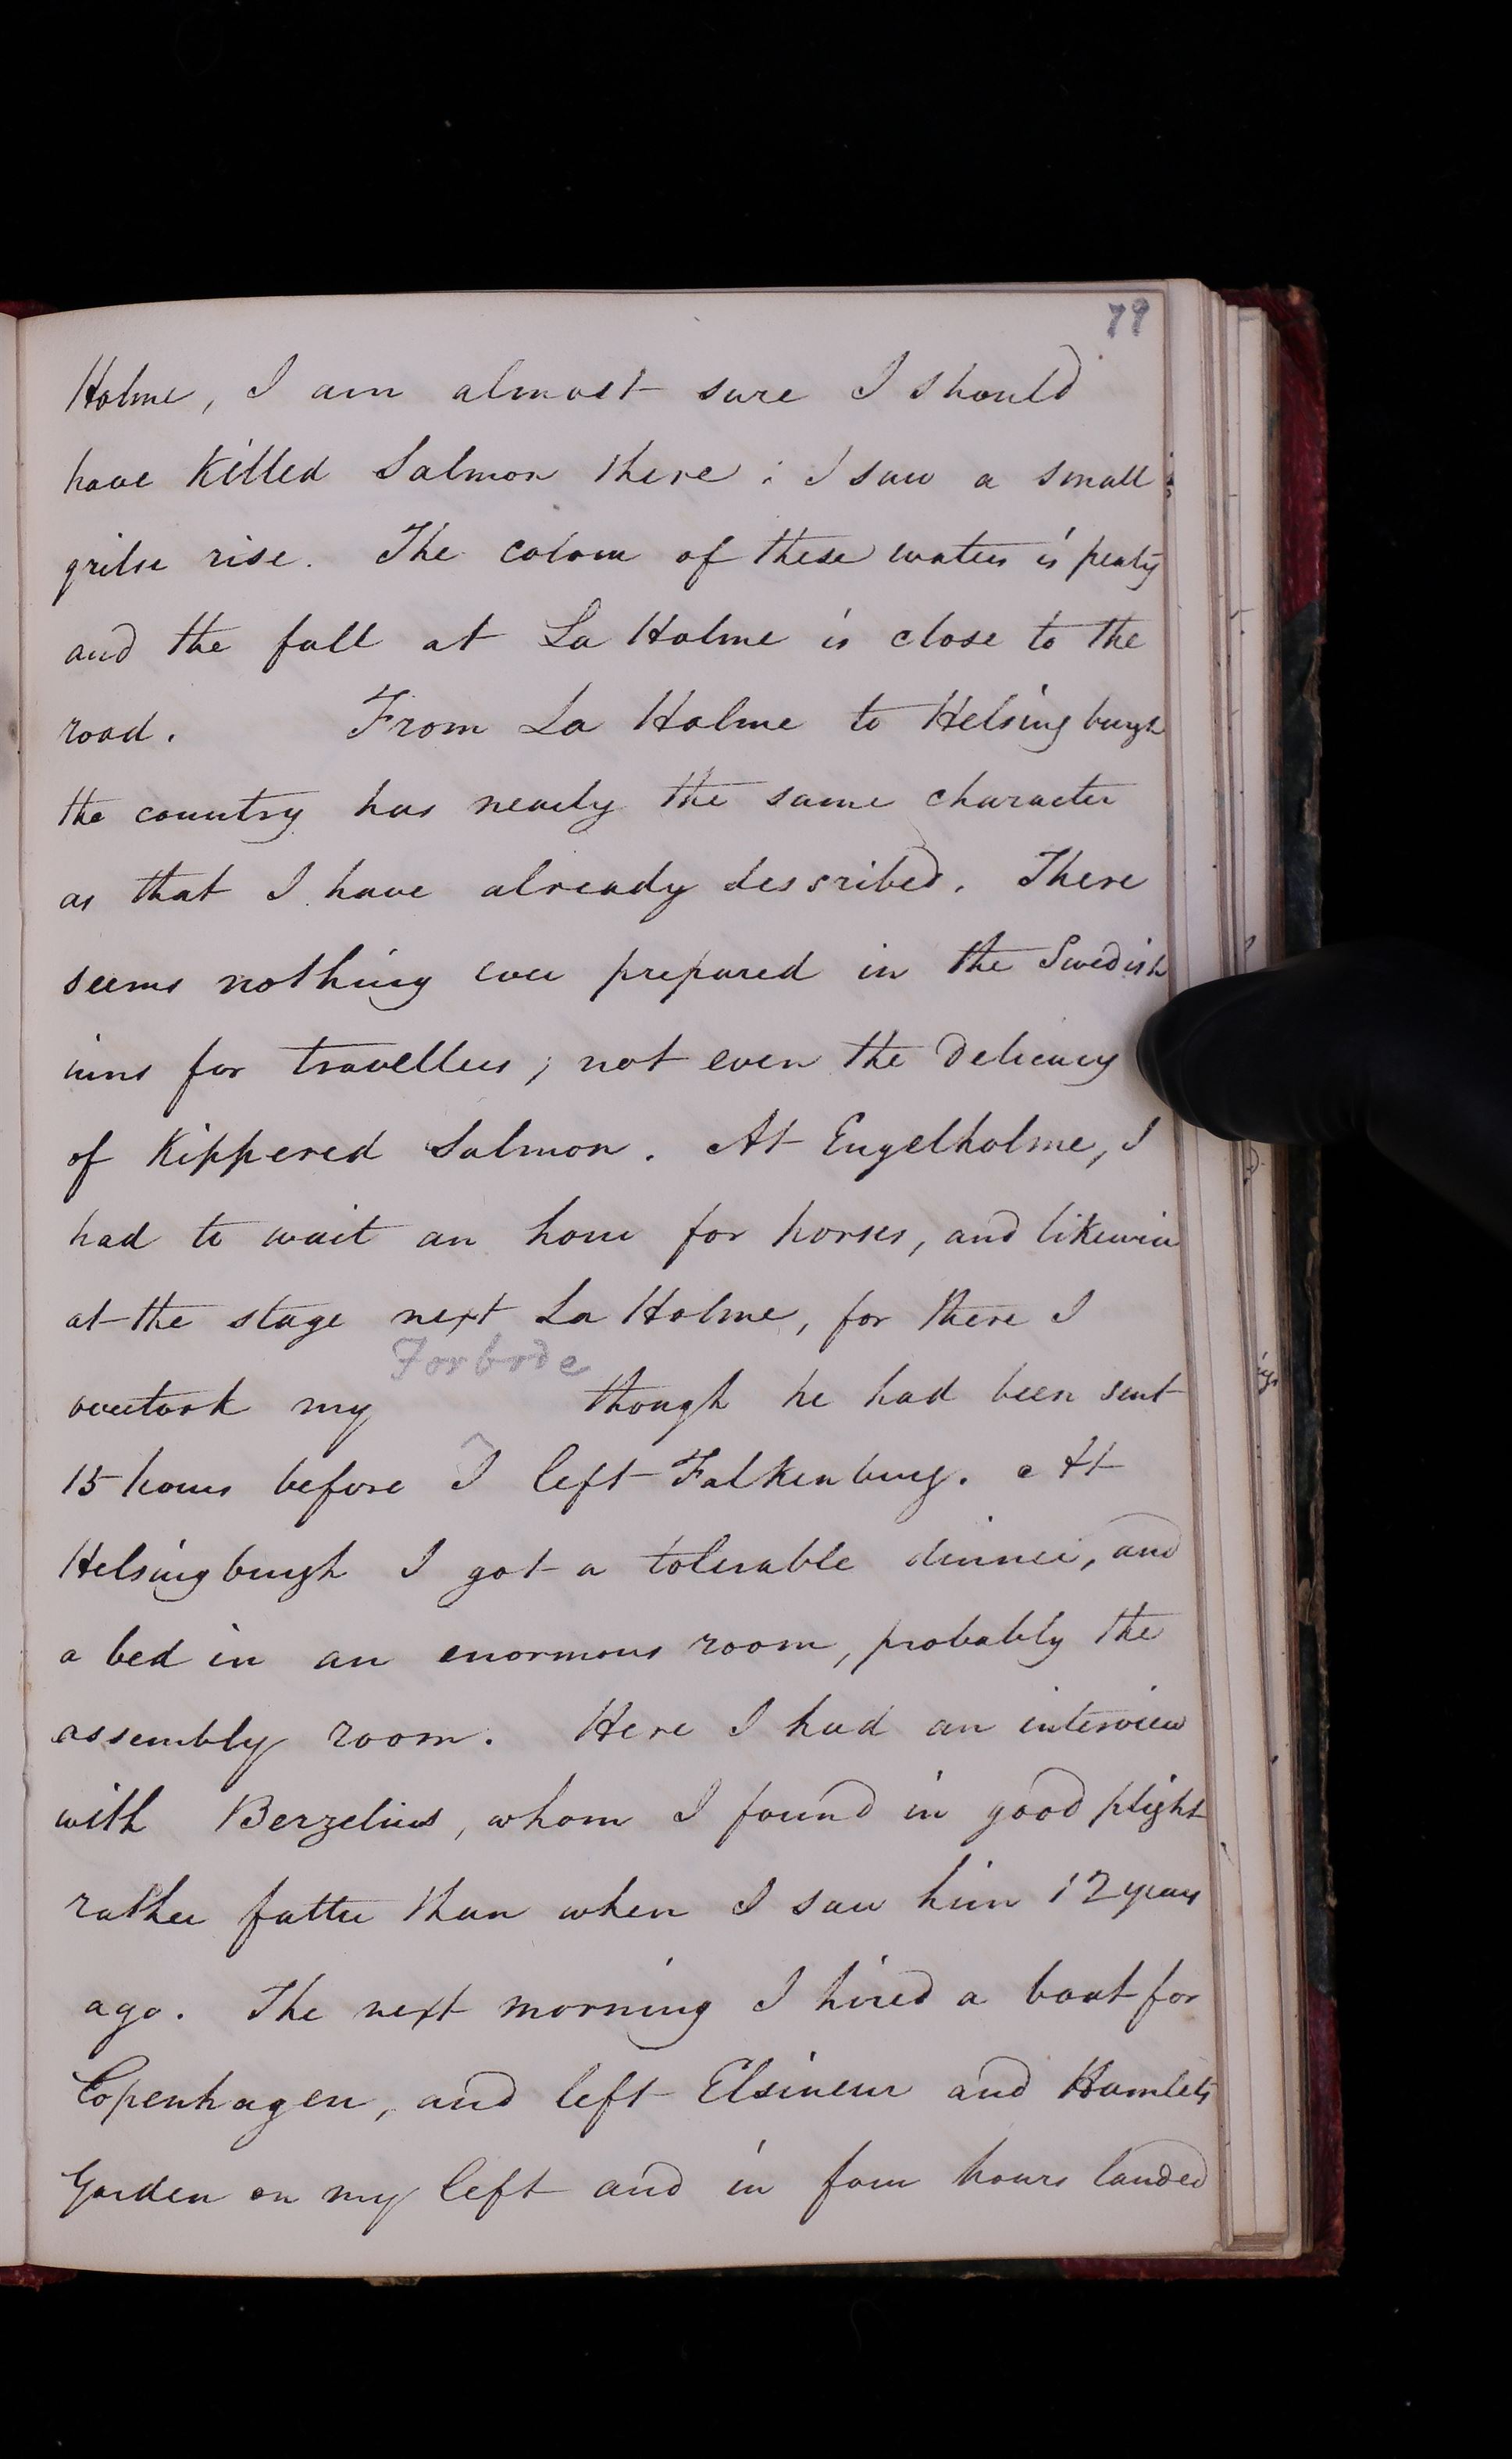 79
Holme, I am almost sure I should
have killed Salmon there; I saw a small
grilse rise. The colour of these waters is peaty
and the fall at La Holme is close to the
road. From La Holme to Helsingburgh
the country has nearly the same character
as that I have already described. There
seems nothing ever prepared in the Swedish
inns for travellers; not even the delicacy
of Kippered Salmon. At Engelholme, I
had to wait an hour for horses, and likewise
at the stage next La Holme, for there I
Forbode
overtook my though he had been sent
15 hours before I left Falkenburg. At
Helsingburgh I got a tolerable dinner, and
a bed in an enormous room, probably the
assembly room. Here I had an interview
with Berzelius, whom I found in good plight
rather fatter than when I saw him 12 years
ago. The next morning I hired a boat for
Copenhagen, and left Elsineur and Hamlets
Garden on my left and in four hours landed